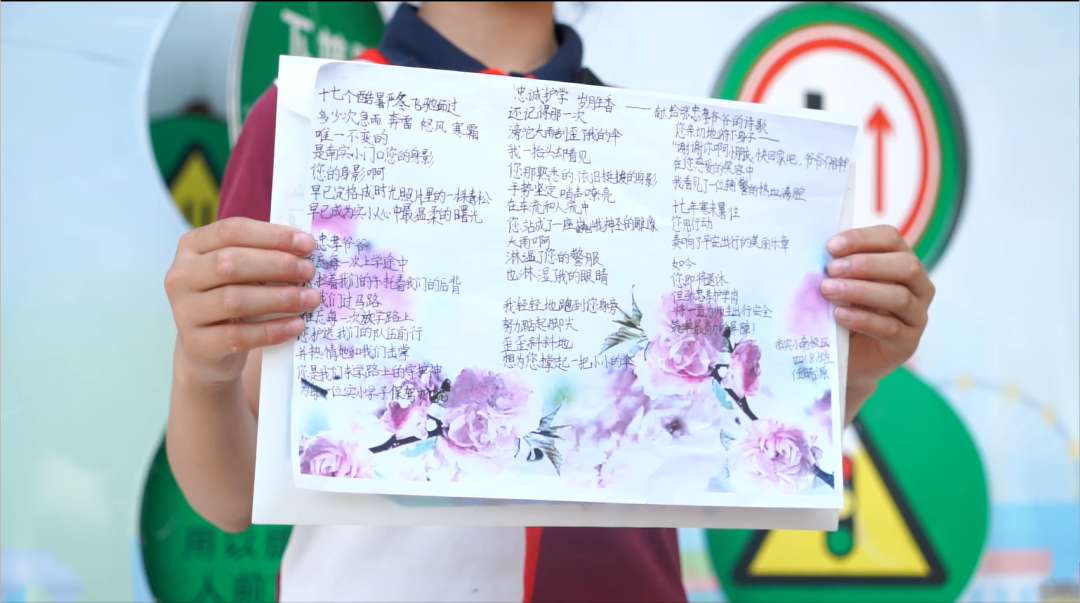 忠诚护学 岁月生香
——献给张忠孝爷爷的诗歌
十七个酷暑严冬飞驰而过
多少次急雨 奔雷 怒风 寒霜
唯一不变的
是南实小门口您的身影
您的身影啊
早已定格成时光照片里的一株青松
早已成为实小人心中最温柔的曙光
忠孝爷爷
每一次上学途中
着我们的手托着我们的后背
我们过马路
每一次放学路上
您护送我们的队伍前行
并热情地和我们击掌
您是我们求学路上的守护神
位实小学子保驾护航
还记得那一次
滂沱大雨刮歪了我的伞
我一抬头却看见
您那熟悉的依旧挺拔的身影
手势坚定 哨声嘹亮
在车流和人流中
您站成了一座巍峨神圣的雕像
大雨啊
淋湿了您的警服
也淋湿了我的眼睛
我轻轻地跑到您身旁
努力踮起脚尖
歪歪斜斜地
想为您撑起一把小小的伞
您亲切地俯下身子——
"谢谢你啊小朋友,快回家吧,爷爷
在您慈爱的笑容中
我看见了一位辅警的热血满腔
十七年寒来暑往
您用行动
奏响了平安出行的美丽乐章
如今
您即将退休
但张忠孝护学岗
将一直为师生出行安全
市实小南校区
四(8)班
下
用
人